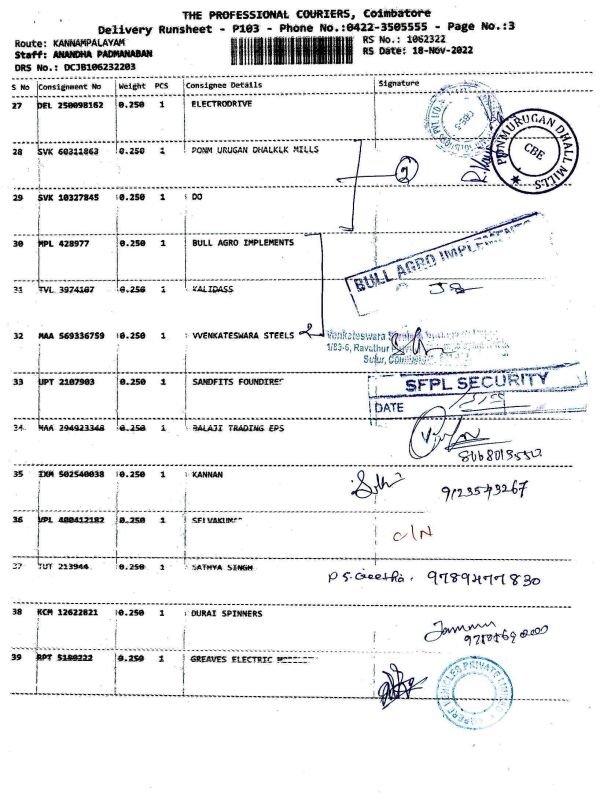 THE PROFESSIONAL COURIERS, Coimbatore
Delivery Runsheet - P103 - Phone No.:0422-3505555 - Page No.:3
Route: KANNAMPALAYAM
RS No.: 1062322
Staff: ANANDHA PADMANABAN
RS Date: 18-Nov-2022
DRS No.: DCJB106232203
S No Consignment No Weight PCS Consignee Details Signature
27 DEL 250098162 0.250 1 ELECTRODRIVE
28 SVK 60311863 0.250 1 PONM URUGAN DHALKLK MILLS
PONMURUGAN DHALL MILLS
CBE
2
29 SVK 10327845 0.250 1 DO
30 MPL 428977 0.250 1 BULL AGRO IMPLEMENTS
BULL AGRO IMPLEMENTS
31 TVL 3974107 0.250 1 KALIDASS
32 MAA 569336759 0.250 1 VVENKATESWARA STEELS 2
Venkateswara
1/83-6, Ravathur
Sulur, Coimbatore
33 UPT 2107903 0.250 1 SANDFITS FOUNDIRES
SFPL SECURITY
DATE
34 MAA 294923348 0.250 1 BALAJI TRADING EPS
35 IXM 502540038 0.250 1 KANNAN
36 VPL 400412182 0.250 1 SELVAKUMAR
C/N
37 TUT 213944 0.250 1 SATHYA SINGH
P S. Geetha. 9789477830
38 KCM 12622821 0.250 1 DURAI SPINNERS
39 RPT 5180222 0.250 1 GREAVES ELECTRIC